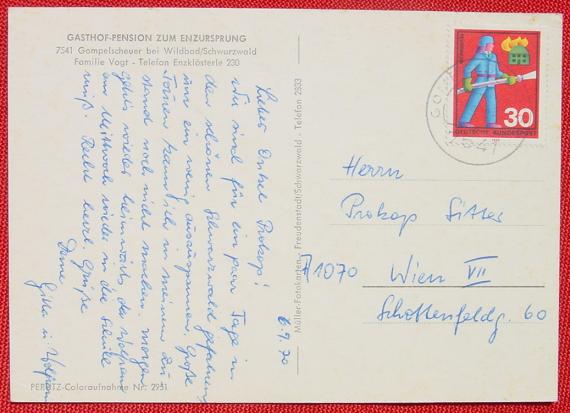 GASTHOF-PENSION ZUM ENZURSPRUNG
7541 Gompelscheuer bei Wildbad/Schwarzwald
Familie Vogt - Telefon Enzklösterle 230
6.9.70
Lieber Onkel Prokop!
Wir sind für ein paar Tage in
den schönen Schwarzwald gefahren
um ein wenig auszuspannen. Große
Touren kann ich in meinem Zu-
stand noch nicht machen. Morgen
geht's wieder heimwärts da Wolfram
am Mittwoch wieder in die Schule
muß. Recht herzl. Grüße
Deine
Gitta u. Wolfram
PERUTZ-Coloraufnahme Nr. 2951
Müller-Fotokarten - Freudenstadt/Schwarzwald - Telefon 2833
30
DEUTSCHE BUNDESPOST
7541
Herrn
Prokop Sitter
A 1070 Wien VII
Schottenfeldg. 60